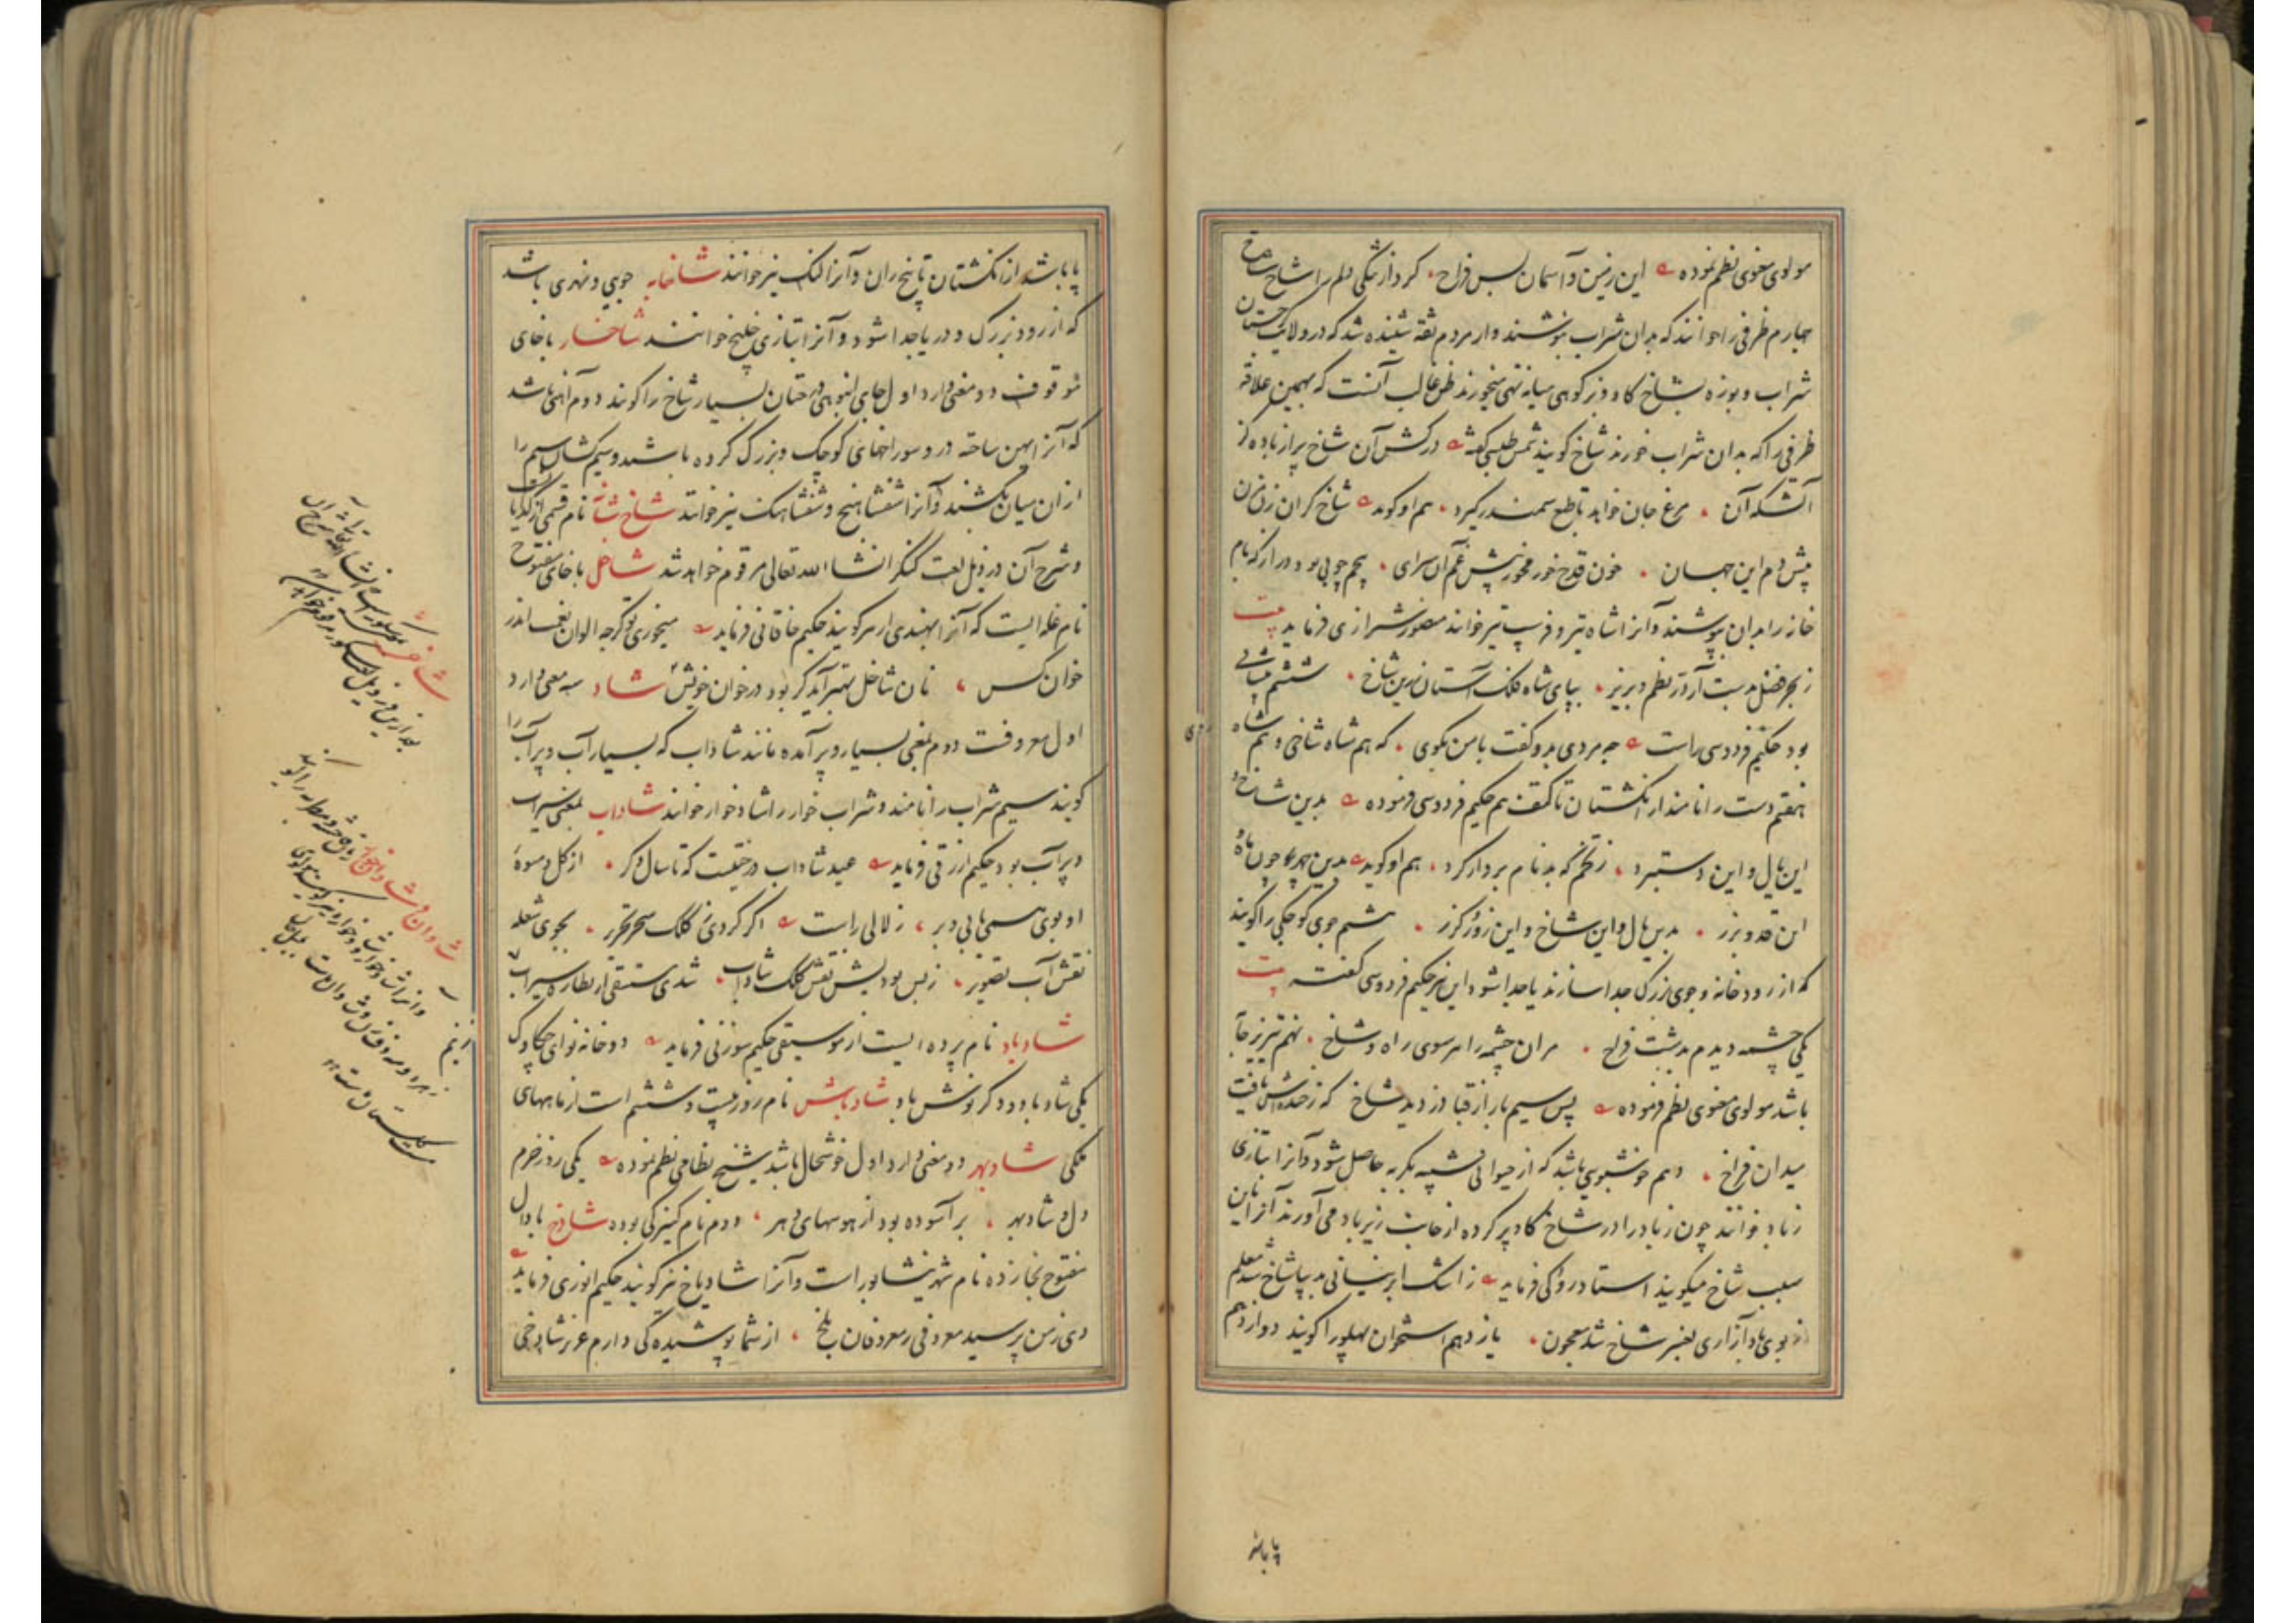 مولوی معنوی نظم نموده این زمین و آسمان بس فراخ کرد از تنگی دلم را شاخ شاخ
چهارم ظرفی را خوانند که بدان شراب نوشند و از مردم ثقه شنیده شد که در ولایت گرجستان
شراب و بوزه بشاخ کاو و بز کوهی میانه تهی میخورند ظن غالب آنست که بهمین علاقه
ظرفی را که بدان شراب خورند شاخ کویند شمس طبسی کفته درکش آن شاخ پر از باده کز
آتشکه آن مرغ جان خواهد تا طبع سمندر گیرد هم او کوید شاخ کران زن
پیش دم این جهان خون قدح خور مخور پیش غم آن سرای پنجم چوبی بود دراز که بام
خانه را بدان بپوشند و آنرا شاه تیر و فرسب نیز خوانند منصور شیرازی فرماید بیت
ز بحر فضل بدست آر در نظم و بریز بپای شاه فلک آستان زرین شاخ ششم پیشانی
بود حکیم فردوسی راست چه مردی بدو کفت با من بکوی که هم شاه شاخی و هم شاه
هفتم دست را نامند از انکشتان تا کتف هم حکیم فردوسی فرموده بدین شاخ و
این یال و این دستبرد ز تخم که بد نام بردار کرد هم او کوید بدین چهر چون ماه
این قد و برز بدین یال و این شاخ و این زور کرز هشتم جوی کوچکی را کویند
که از رودخانه و جوی بزرک جدا سازند یا جدا شود این نیز حکیم فردوسی کفته بیت
یکی چشمه دیدم بدشت فراخ مران چشمه را هر سوی راه و شاخ نهم تیریز جامه
باشد مولوی معنوی نظم فرموده پس سیم بار از قبا دزدید شاخ که ز خنده اش یافت
میدان فراخ دهم خوشبویی باشد که از حیوانی شبیه بکربه حاصل شود و آنرا بتازی
زباد خوانند چون زباد را در شاخ کاو پر کرده از جانب زیرباد می آورند آنرا باین
سبب شاخ میگویند استاد رودکی فرماید ز اشک ابر نیسانی بدیبا شاخ شد معلم
ز بوی باد آزاری بعنبر شاخ شد معجون یازدهم استخوان پهلو را کویند دوازدهم
پا باشد
پا باشد از انکشتان تا بیخ ران و آنرا لنک نیز خوانند شاخابه جویی و نهری باشد
که از رود بزرک و دریا جدا شود و آنرا بتازی خلیج خوانند شاخسار باخای
موقوف دو معنی دارد اول جای انبوهی درختان بسیار شاخ را کویند دوم آهنی باشد
که آنرا پهن ساخته در و سوراخهای کوچک و بزرک کرده باشند و سیم کشان سیم را
از ان میان بکشند و آنرا شفشاهنج و شفشاهنک نیز خوانند شاخ شانه نام قسمی از کدایانست
و شرح آن در ذیل لغت کنکر انشاء الله تعالی مرقوم خواهد شد شاخل باخای مفتوح
نام غله ایست که آنرا بهندی ارهر کویند حکیم خاقانی فرماید میخوری تو کرچه الوان نعم اندر
خوان کس نان شاخل بهتر آید کر بود در خوان خویش شاد سه معنی دارد
اول معروفست دوم بمعنی بسیار و پر آمده مانند شاداب که بسیار آب و پر آب را
کویند سیم شراب را نامند و شراب خوار را شادخوار خوانند شاداب بمعنی سیراب
و پر آب بود حکیم ازرقی فرماید عید شاداب درختیست که تا سال دکر از کل و میوهٔ
او بوی همی یابی و بر زلالی راست اکر کردی کلک سحر تحریر بجوی شعله
نقش آب تصویر ز بس بودیش نقش کلک شاداب شدی مستسقی از نظاره سیراب
شادباد نام پرده ایست از موسیقی حکیم سوزنی فرماید دو خانه نوای چکاوک
یکی شاد باد و دکر نوش باد شادباش نام روز بیست و ششم است از ماههای
ملکی شادبهر دو معنی دارد اول خوشحال باشد شیخ نظامی نظم نموده یکی روز خرم
دل و شادبهر بر آسوده بود از هوسهای دهر دوم نام کنیزکی بوده شادخ با دال
مفتوح بخا زده نام شهر نیشابور است و آنرا شادیاخ نیز کویند حکیم انوری فرماید
دی ز من پرسید معروفی ز معروفان بلخ از شما پوشیده کی دارم عزیز شادخی